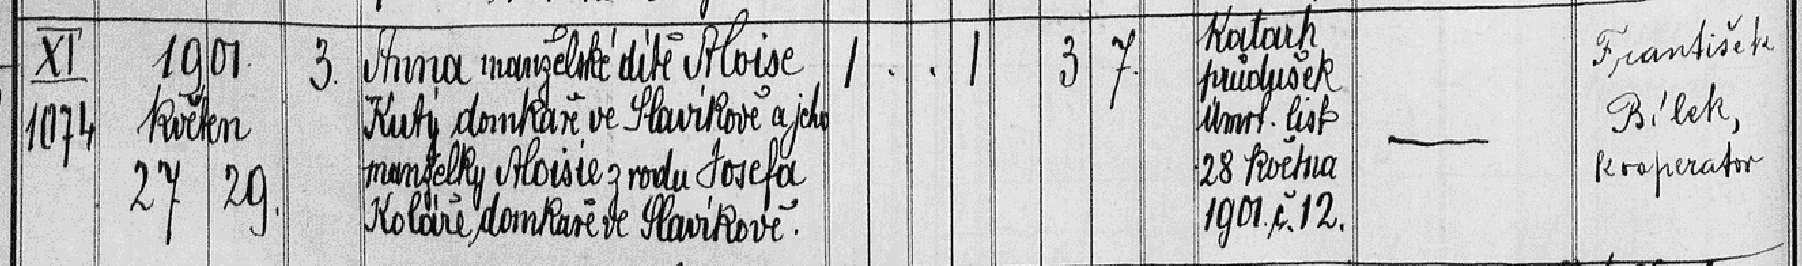 XI
1074
1901.
květen
27 29.
3.
Anna manželské dítě Aloise
Kutý domkaře ve Slavíkově a jeho
manželky Aloisie z rodu Josefa
Koláře, domkaře ve Slavíkově.
1 . . 1 3 7.
Katarh
průdušek
Úmrt. list
28 května
1901. č. 12.
—
František
Bílek,
kooperator